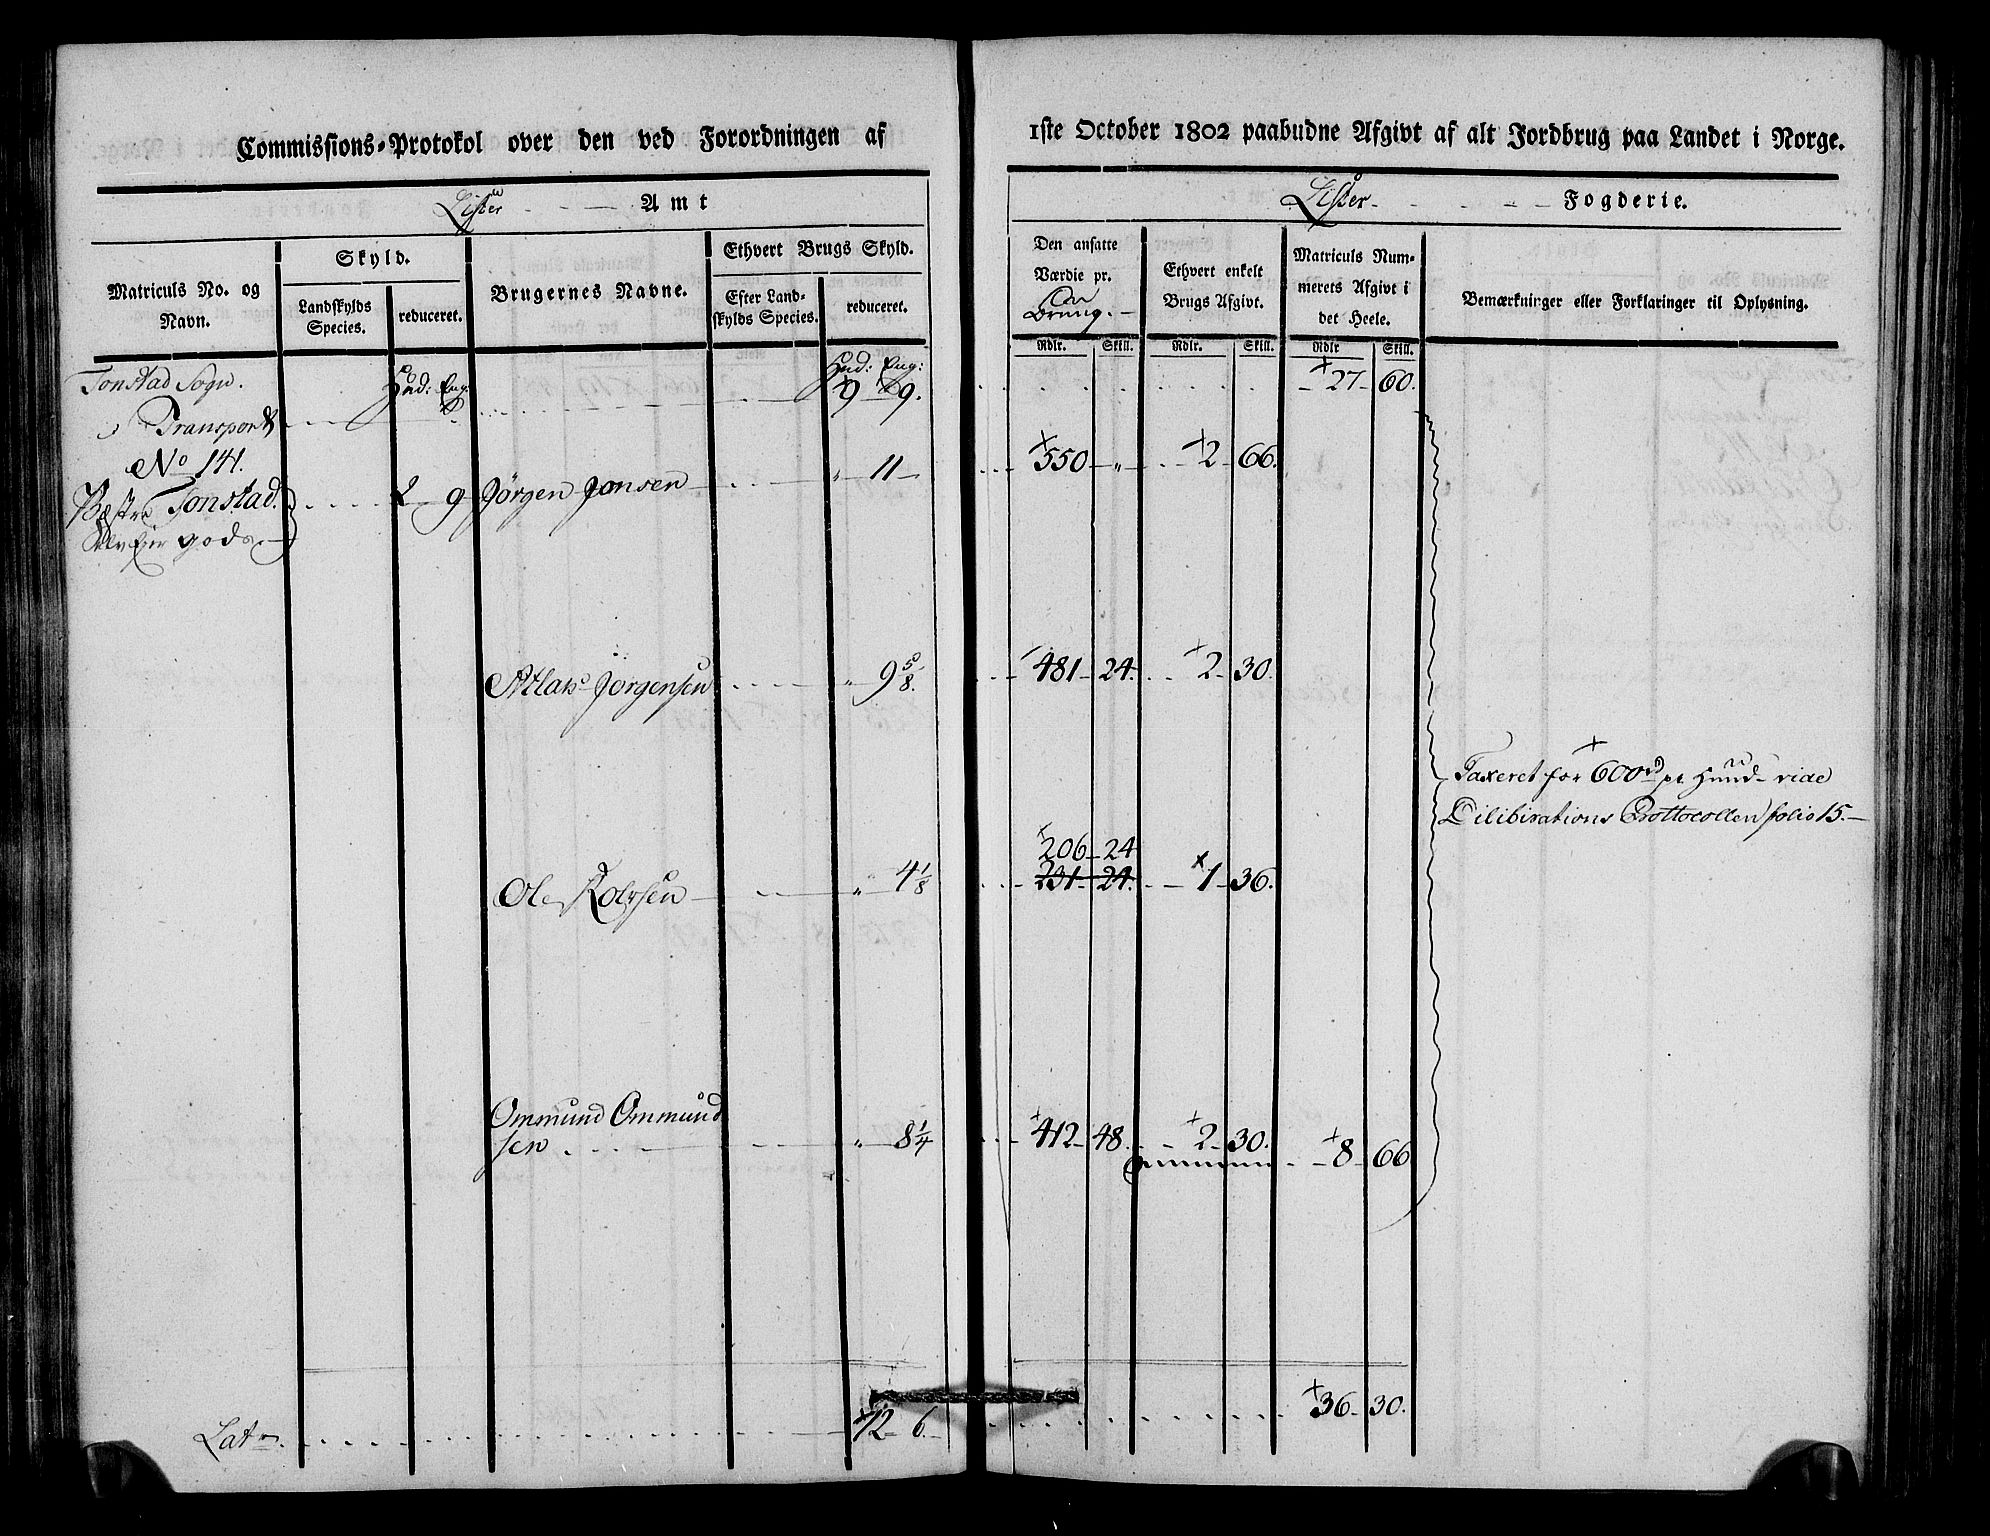 Commissions-Protokol over den ved Forordningen af
Lister Amt
Matriculs No. og Navn.
Skyld.
Landskylds Species.
reduceret.
Brugernes Navne.
Ethvert Brugs Skyld.
Efter Land-
skylds Species.
reduceret.
Tonstad Sogn. Hud: Eng: Hud: Eng:
Transport 9 9.
No 141.
Vestre Tonstad. 2 9 Jörgen Jonsen „ 11
Selv Eier gods
Atlak Jörgensen „ 9 5/8.
Ole Rolvsen „ 4 1/8
Ommund Ommund
sen „ 8 1/4
Lat 12 6.
1ste October 1802 paabudne Afgivt af alt Jordbrug paa Landet i Norge.
Lister Fogderie.
Den ansatte
Værdie pr.
Brug.
Ethvert enkelt
Brugs Afgivt.
Matriculs Num-
merets Afgivt i
det Heele.
Bemærkninger eller Forklaringer til Oplysning.
Rdlr. Skill. Rdlr. Skill. Rdlr Skill.
27 60.
550 „ 2 66.
481 24. 2 30.
Taxeret for 600 rd pr Huud vide
Dilibirations Prottocollen folio 15.
206 24
231 24. 1 36.
412 48. 2 30. 8 66
36 30.